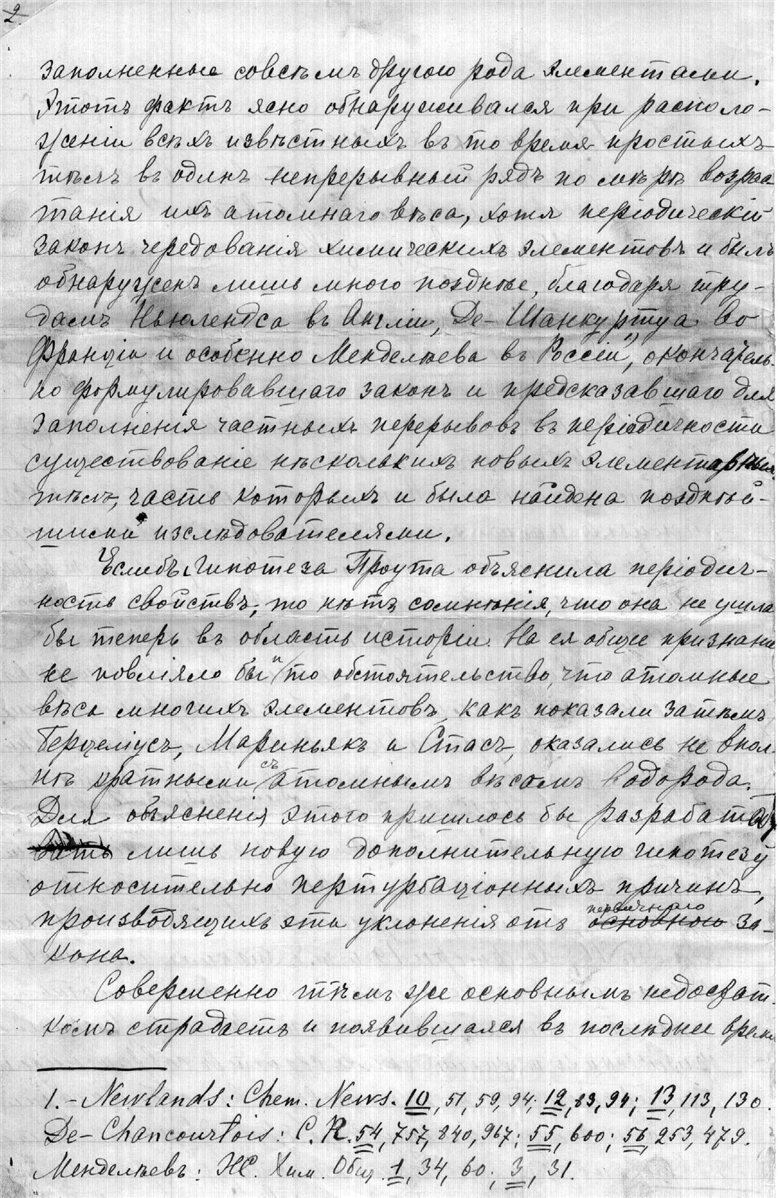 2.
заполненные совсѣмъ другого рода элементами.
Этотъ фактъ ясно обнаруживался при распо‑
женіи всѣхъ извѣстныхъ въ то время простыхъ
тѣлъ въ одинъ непрерывный рядъ по мѣрѣ возрас
танія ихъ атомнаго вѣса, хотя періодическій
законъ чередованія химическихъ элементовъ и былъ
обнаруженъ лишь много позднѣе, благодаря тру-
дамъ Ньюлендса въ Англіи, Де-Шанкуртуа во
Франціи и особенно Менделѣева въ Россіи¹⁾, окончатель-
но формулировавшаго законъ и предсказавшаго для
заполненія частныхъ перерывовъ въ періодичности
существованіе нѣсколькихъ новыхъ элементарныхъ
тѣлъ, часть которыхъ и была найдена позднѣй-
шими изслѣдователями.
Еслибъ гипотеза Проута объяснила періодич-
ность свойствъ, то нѣтъ сомнѣнія, что она не ушла
бы теперь въ область исторіи. На ея общее признаніе
не повліяло бы и то обстоятельство, что атомные
вѣса многихъ элементовъ, какъ показали затѣмъ
Берцеліусъ, Мариньякъ и Стасъ, оказались не впол-
нѣ кратными съ атомнымъ вѣсомъ водорода.
Для объясненія этого пришлось бы разработать
лишь новую дополнительную гипотезу
относительно пертурбаціонныхъ причинъ,
производящихъ эти уклоненія отъ первичнаго основного за-
кона.
Совершенно тѣмъ же основнымъ недостат-
комъ страдаетъ и появившаяся въ послѣднее время
1.- Newlands: Chem. News. 10, 51, 59, 94; 12, 83, 94; 13, 113, 130.
De-Chancourtois: C. R. 54, 757, 840, 967; 55, 600; 56, 253, 479.
Менделѣевъ: Ж. Хим. Общ. 1, 34, 60; 3, 31.